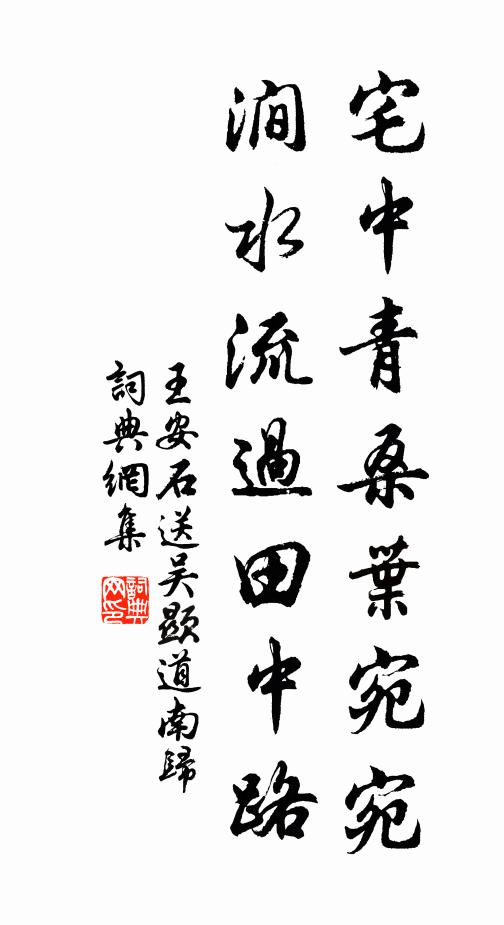 宅中青桑葉宛宛
澗水流過田中路
王安石送吴顯道南歸
詞典網集